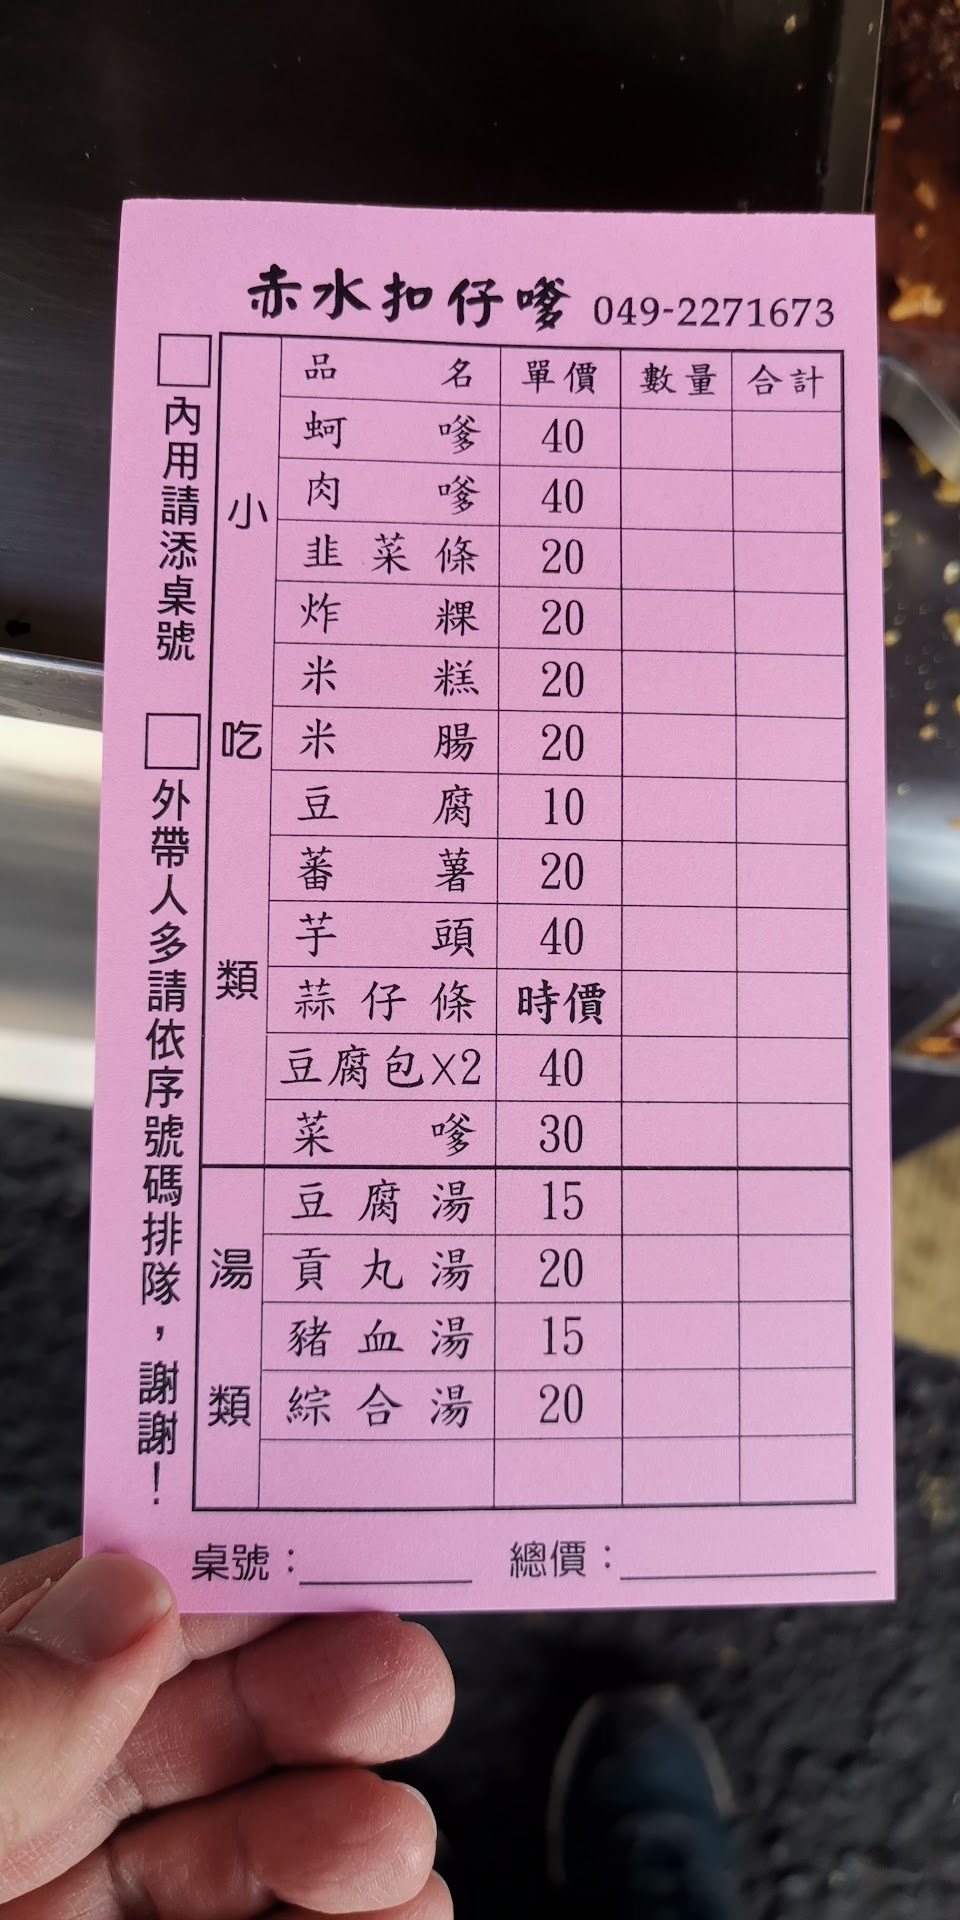 赤水扣仔嗲 049-2271673
品名 單價 數量 合計
小吃類
蚵嗲 40
肉嗲 40
韭菜條 20
炸粿 20
米糕 20
米腸 20
豆腐 10
蕃薯 20
芋頭 40
蒜仔條 時價
豆腐包X2 40
菜嗲 30
湯類
豆腐湯 15
貢丸湯 20
豬血湯 15
綜合湯 20
內用請添桌號
外帶人多請依序號碼排隊，謝謝！
桌號： 總價：